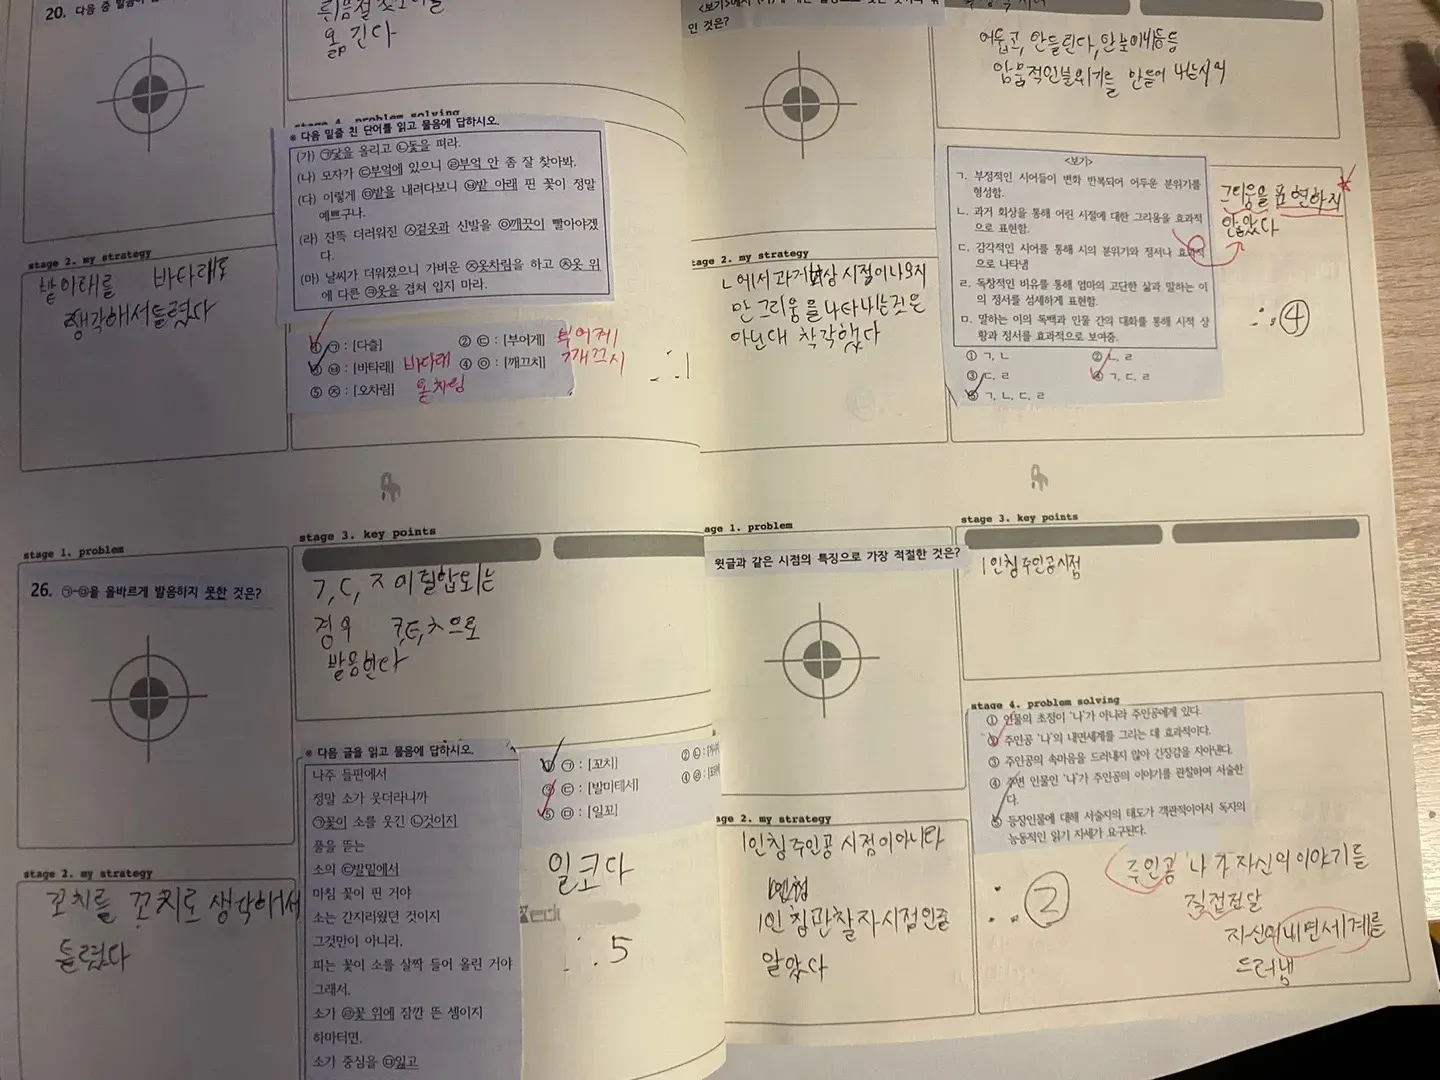 20. 다음 중 발음이
옮긴다
stage 4. problem solving
※ 다음 밑줄 친 단어를 읽고 물음에 답하시오.
(가) ㉠닻을 올리고 ㉡돛을 펴라.
(나) 모자가 ㉢부엌에 있으니 ㉣부엌 안 좀 잘 찾아봐.
(다) 이렇게 ㉤밭을 내려다보니 ㉥밭 아래 핀 꽃이 정말
예쁘구나.
(라) 잔뜩 더러워진 ㉦겉옷과 신발을 ㉧깨끗이 빨아야겠
다.
(마) 날씨가 더워졌으니 가벼운 ㉨옷차림을 하고 ㉩옷 위
에 다른 ㉪옷을 겹쳐 입지 마라.
① ㉠ : [다츨]
② ㉢ : [부어게] 부어케
③ ㉥ : [바타래] 바다래
④ ㉧ : [깨끄치] 깨끄시
⑤ ㉨ : [오차림] 옫차림
∴ 1
stage 2. my strategy
밭아래를 바타래로
생각해서 틀렸다
stage 1. problem
26. ㉠~㉤을 올바르게 발음하지 못한 것은?
stage 3. key points
ㄱ, ㄷ, ㅈ이 결합되는
경우 ㅋ,ㅌ,ㅊ으로
발음한다
※ 다음 글을 읽고 물음에 답하시오.
나주 들판에서
정말 소가 웃더라니까
㉠꽃이 소를 웃긴 ㉡것이지
풀을 뜯는
소의 ㉢발밑에서
마침 꽃이 핀 거야
소는 간지러웠던 것이지
그것만이 아니라.
피는 꽃이 소를 살짝 들어 올린 거야
그래서.
소가 ㉣꽃 위에 잠깐 뜬 셈이지
하마터면.
소가 중심을 ㉤잃고
① ㉠ : [꼬치]
③ ㉢ : [발미테서]
⑤ ㉤ : [일꼬]
일코다
∴ 5
stage 2. my strategy
꼬치를 꼬치로 생각해서
틀렸다
인 것은?
어둡고, 안들린다, 안보이네등등
암울적인분위기를 만들어 내는시어
<보기>
ㄱ. 부정적인 시어들이 변화 반복되어 어두운 분위기를
형성함.
ㄴ. 과거 회상을 통해 어린 시절에 대한 그리움을 효과적
으로 표현함.
ㄷ. 감각적인 시어를 통해 시의 분위기와 정서나 효과적
으로 나타냄
ㄹ. 독창적인 비유를 통해 엄마의 고단한 삶과 말하는 이
의 정서를 섬세하게 표현함.
ㅁ. 말하는 이의 독백과 인물 간의 대화를 통해 시적 상
황과 정서를 효과적으로 보여줌.
① ㄱ, ㄴ
② ㄴ, ㄹ
③ ㄷ, ㄹ
④ ㄱ, ㄷ, ㄹ
⑤ ㄱ, ㄴ, ㄷ, ㄹ
그리움을 표현하지
않았다
∴ ④
stage 2. my strategy
ㄴ에서 과거회상 시절이나오지
만 그리움을 나타내는것은
아닌대 착각했다
stage 1. problem
윗글과 같은 시점의 특징으로 가장 적절한 것은?
stage 3. key points
1인칭주인공시점
stage 4. problem solving
① 인물의 초점이 '나'가 아니라 주인공에게 있다.
② 주인공 '나'의 내면세계를 그리는 데 효과적이다.
③ 주인공의 속마음을 드러내지 않아 긴장감을 자아낸다.
④ 주변 인물인 '나'가 주인공의 이야기를 관찰하여 서술한
다.
⑤ 등장인물에 대해 서술자의 태도가 객관적이어서 독자의
능동적인 읽기 자세가 요구된다.
∴ ②
주인공 나가 자신의 이야기를
직접전달
자신의 내면세계를
드러냄
stage 2. my strategy
1인칭주인공 시점이아니라
1인칭관찰자시점인줄
알았다